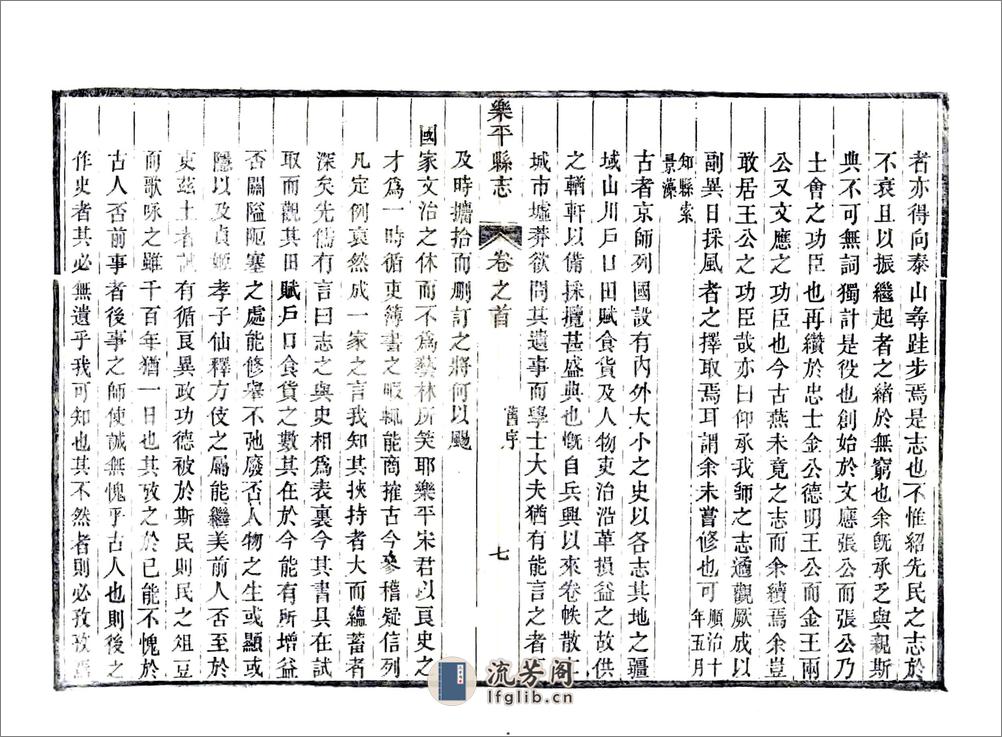 者亦得向泰山尋跬步焉是志也不惟紹先民之志於
不衰且以振繼起者之緒於無窮也余旣承乏與親斯
典不可無詞獨計是役也創始於文應張公而張公乃
士會之功臣也再纘於忠士金公德明王公而金王兩
公又文應之功臣也今古燕未竟之志而余續焉余豈
敢居王公之功臣哉亦曰仰承我師之志遹觀厥成以
副異日採風者之擇取焉耳謂余未嘗修也可順治十年五月
知縣索景藻
古者京師列國設有內外大小之史以各志其地之疆
域山川戶口田賦食貨及人物吏治沿革損益之故供
之輶軒以備採擥甚盛典也慨自兵興以來卷帙散亡
城市墟莽欲問其遺事而學士大夫猶有能言之者不
樂平縣志
卷之首
舊序
七
及時攟拾而刪訂之將何以颺
國家文治之休而不爲藝林所笑耶樂平宋君以良史之
才爲一時循吏簿書之暇輒能商搉古今參稽疑信列
凡定例裒然成一家之言我知其挾持者大而蘊蓄者
深矣先儒有言曰志之與史相爲表裏今其書具在試
取而觀其田賦戶口食貨之數其在於今能有所增益
否關隘阨塞之處能修舉不弛廢否人物之生或顯或
隱以及貞姬孝子仙釋方伎之屬能繼美前人否至於
吏茲土者誠有循良異政功德被於斯民則民之俎豆
而歌咏之雖千百年猶一日也其攷之於已能不愧於
古人否前事者後事之師使誠無愧乎古人也則後之
作史者其必無遺乎我可知也其不然者則必孜孜焉
流芳阁
lfglib.cn